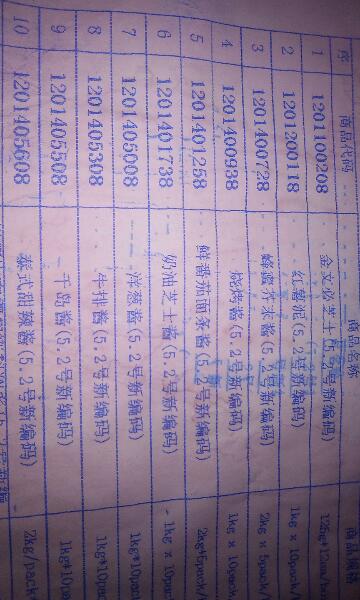 序 商品代码 商品名称 商品规格
1 1201100208 金文必芝士 号新编码)
2 1201200118 红薯泥(5.2号新编码) 1kg × 10pack
3 1201400728 蜂蜜芥末酱(5.2号新编码) 2kg × 6pack/
4 1201400938 烧烤酱(5.2号新编码) 1kg × 10pack
5 1201401258 鲜番茄面条酱(5.2号新编码) 2kg*6pack/
6 1201401738 奶油芝士酱(5.2号新编码) 1kg × 10pack
7 1201405008 洋葱酱(5.2号新编码) 1kg*10pack
8 1201405308 牛排酱(5.2号新编码) 1kg*10pack
9 1201405508 千岛酱(5.2号新编码) 1kg*10pack
10 1201405608 泰式甜辣酱(5.2号新编码) 2kg/pack